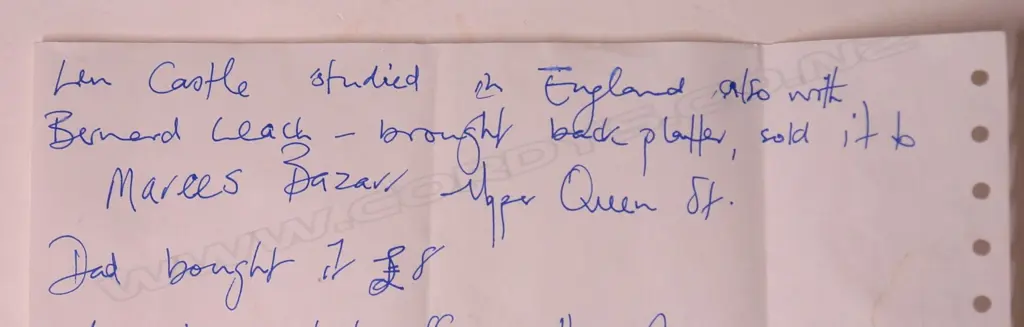 Len Castle studied in England also with
Bernard Leach – brought back platter, sold it to
Bazarr Upper Queen St.
Dad bought it £8
WWW.CORDYS.CO.NZ